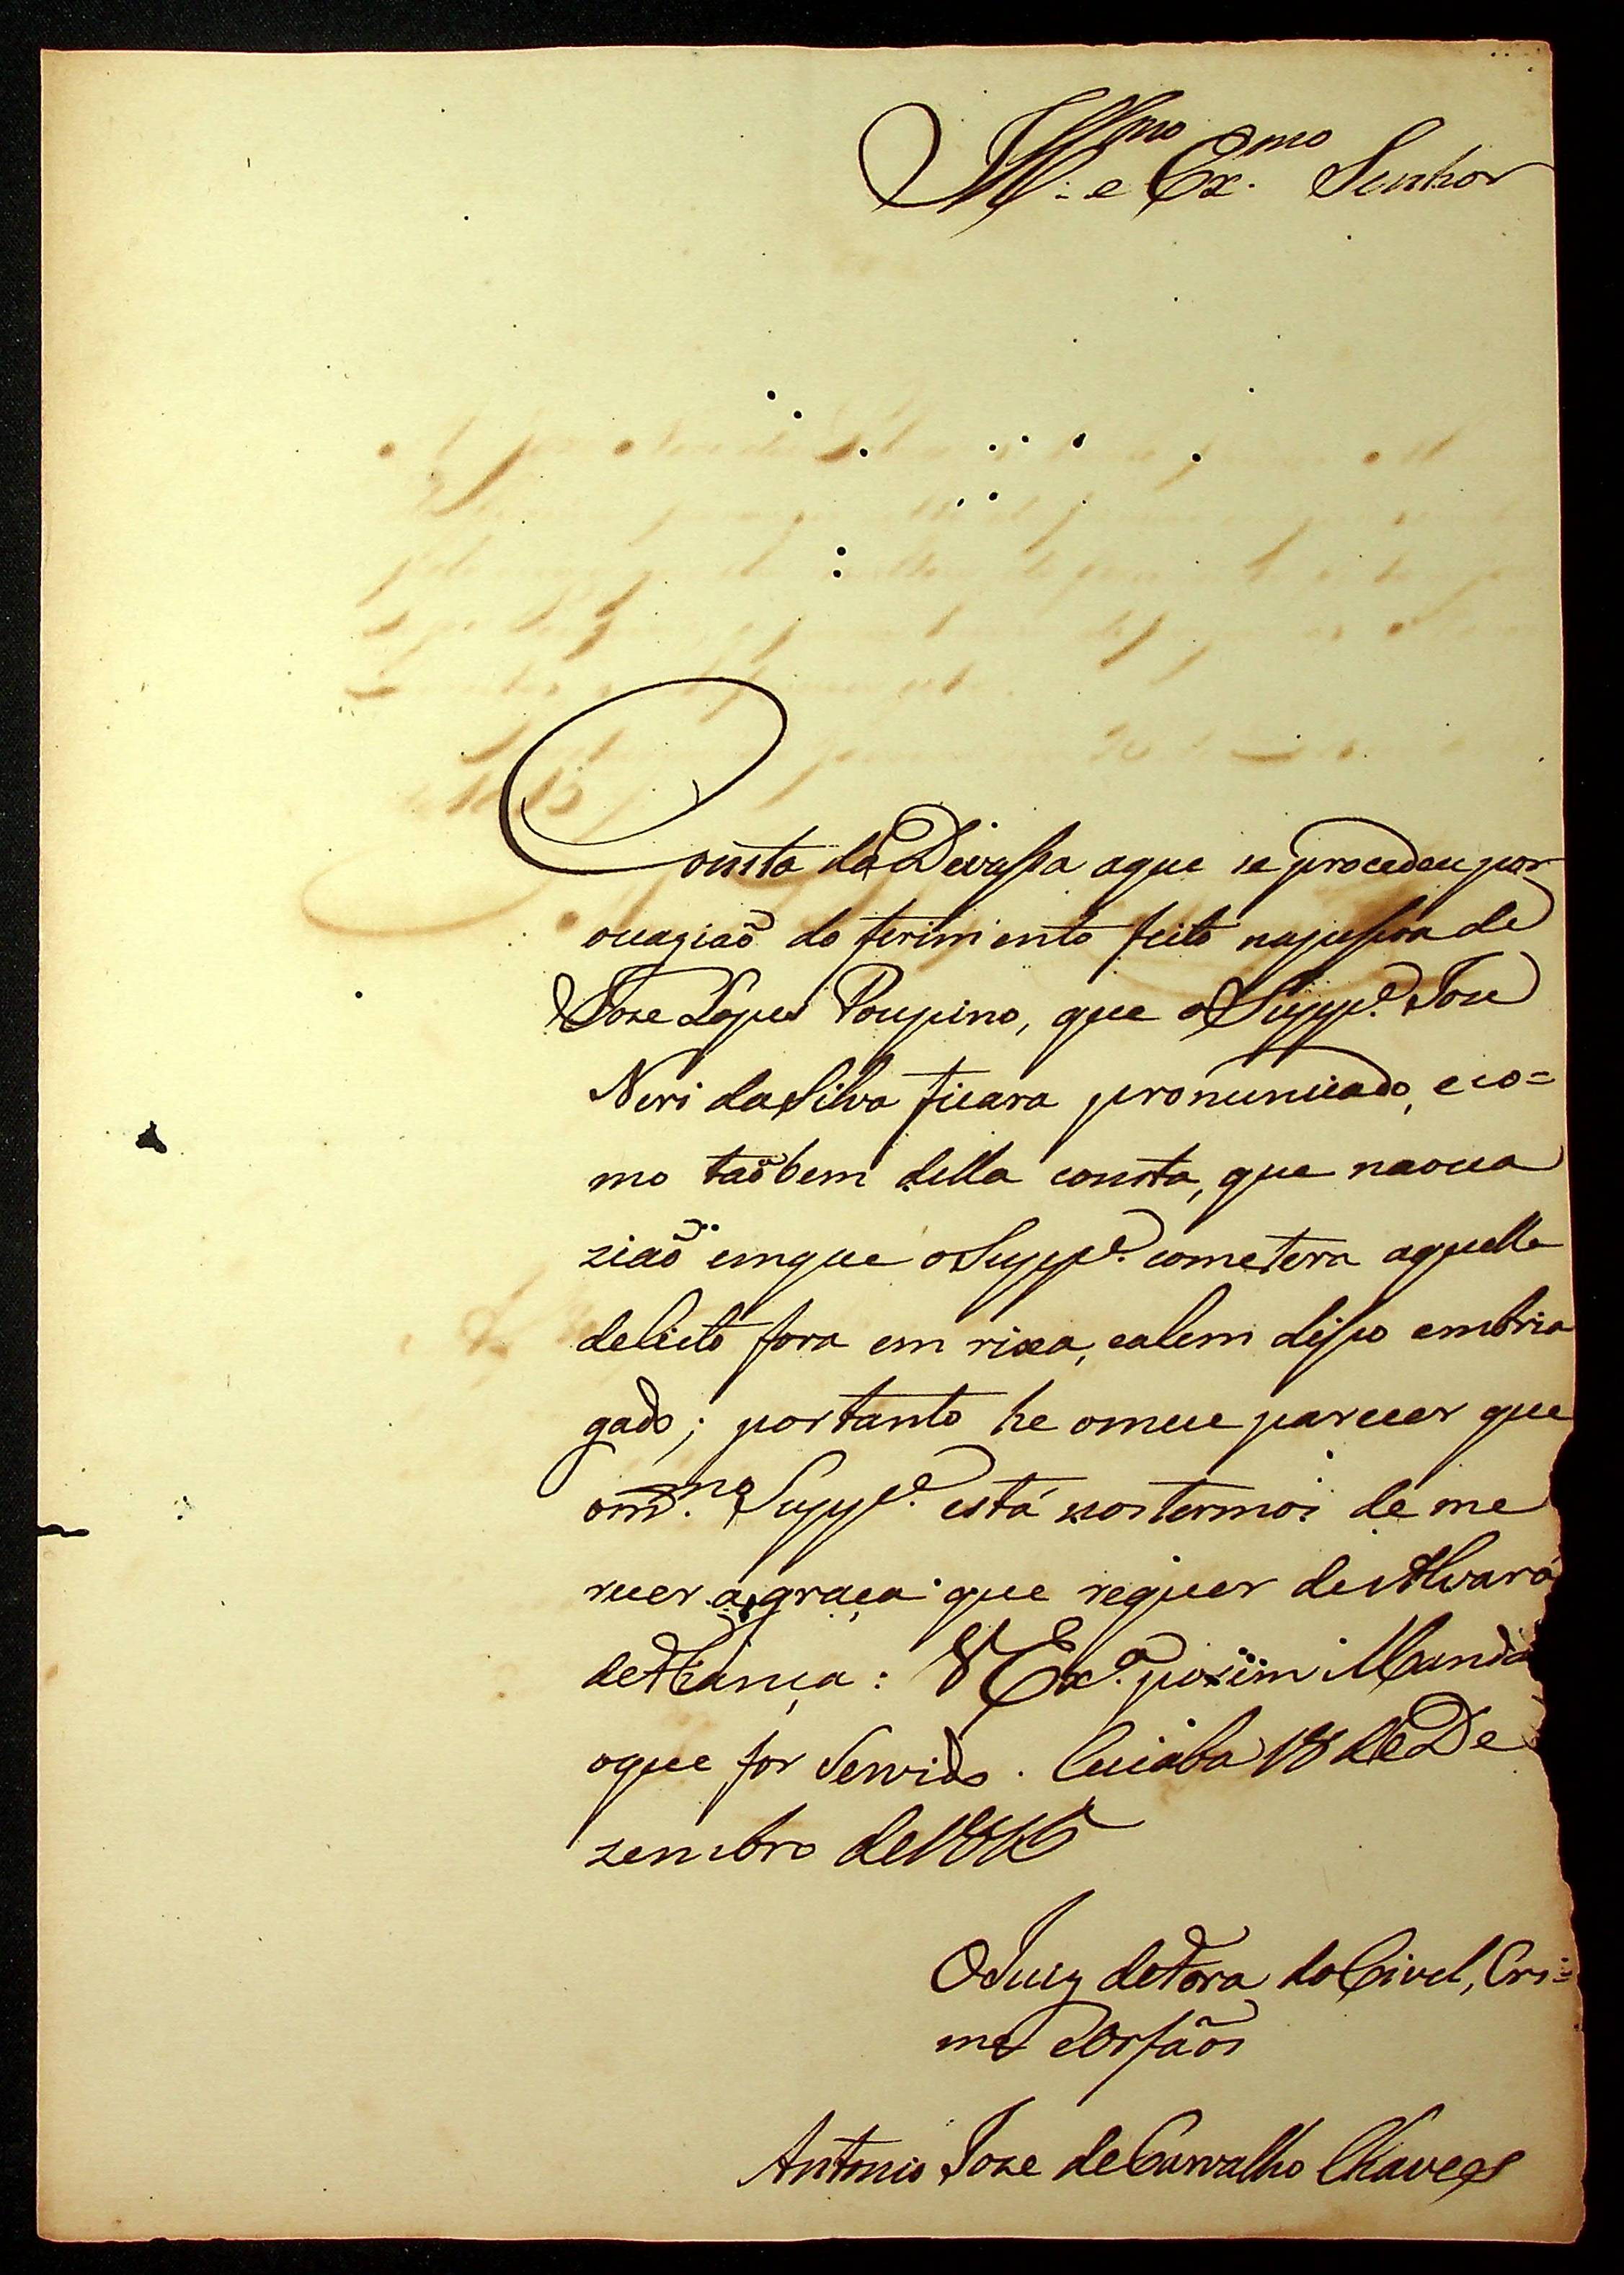 Ill.mo e Ex.mo Senhor
Consta da Devassa aque se procedeu por
ocagiaõ do ferimento feito napessoa de
Joze Lopes Poupino, que o Supp.e Joze
Neri da Silva ficara pronunciado, e co=
mo taõbem della consta, que naoca
ziaõ emque o Supp.e cometera aquelle
delicto fora em rixa, ealem disso embria
gado; portanto he omeu parecer que
om.mo Supp.e está nos termos de me
recer a graça que requer de Alvará
de Fiança: V Ex.a porem Mandá
oque for Servido. Cuiaba 18 de De
zembro de 1816
O Juiz de Fora do Civel, Cri=
me e Orfãos
Antonio Joze de Carvalho Chaves